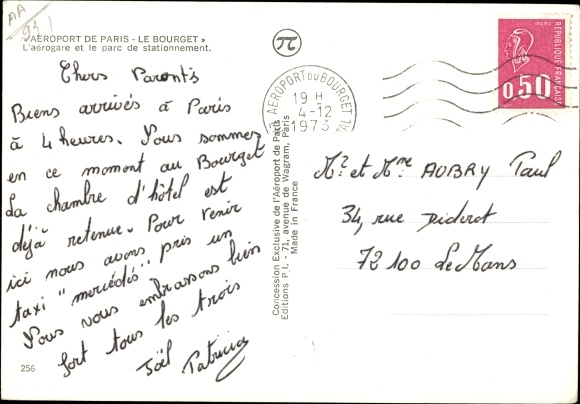 AA
931
"AÉROPORT DE PARIS - LE BOURGET »
L'aérogare et le parc de stationnement.
Chers Parents
Biens arrivés à Paris
à 4 heures. Nous sommes
en ce moment au Bourget
La chambre d'hôtel est
déjà retenue. Pour venir
ici nous avons pris un
taxi "mercédés"
Nous vous embrassons bien
fort tous les trois
Joël Patricia
256
π
AEROPORT DU BOURGET
19 H
4-12
1973
DUPLEX
REPUBLIQUE FRANÇAISE
0,50
Concession Exclusive de l'Aéroport de Paris
Editions P.I. - 71, avenue de Wagram, Paris
Made in France
Mr et Mme AUBRY Paul
34, rue Diderot
72100 Le Mans